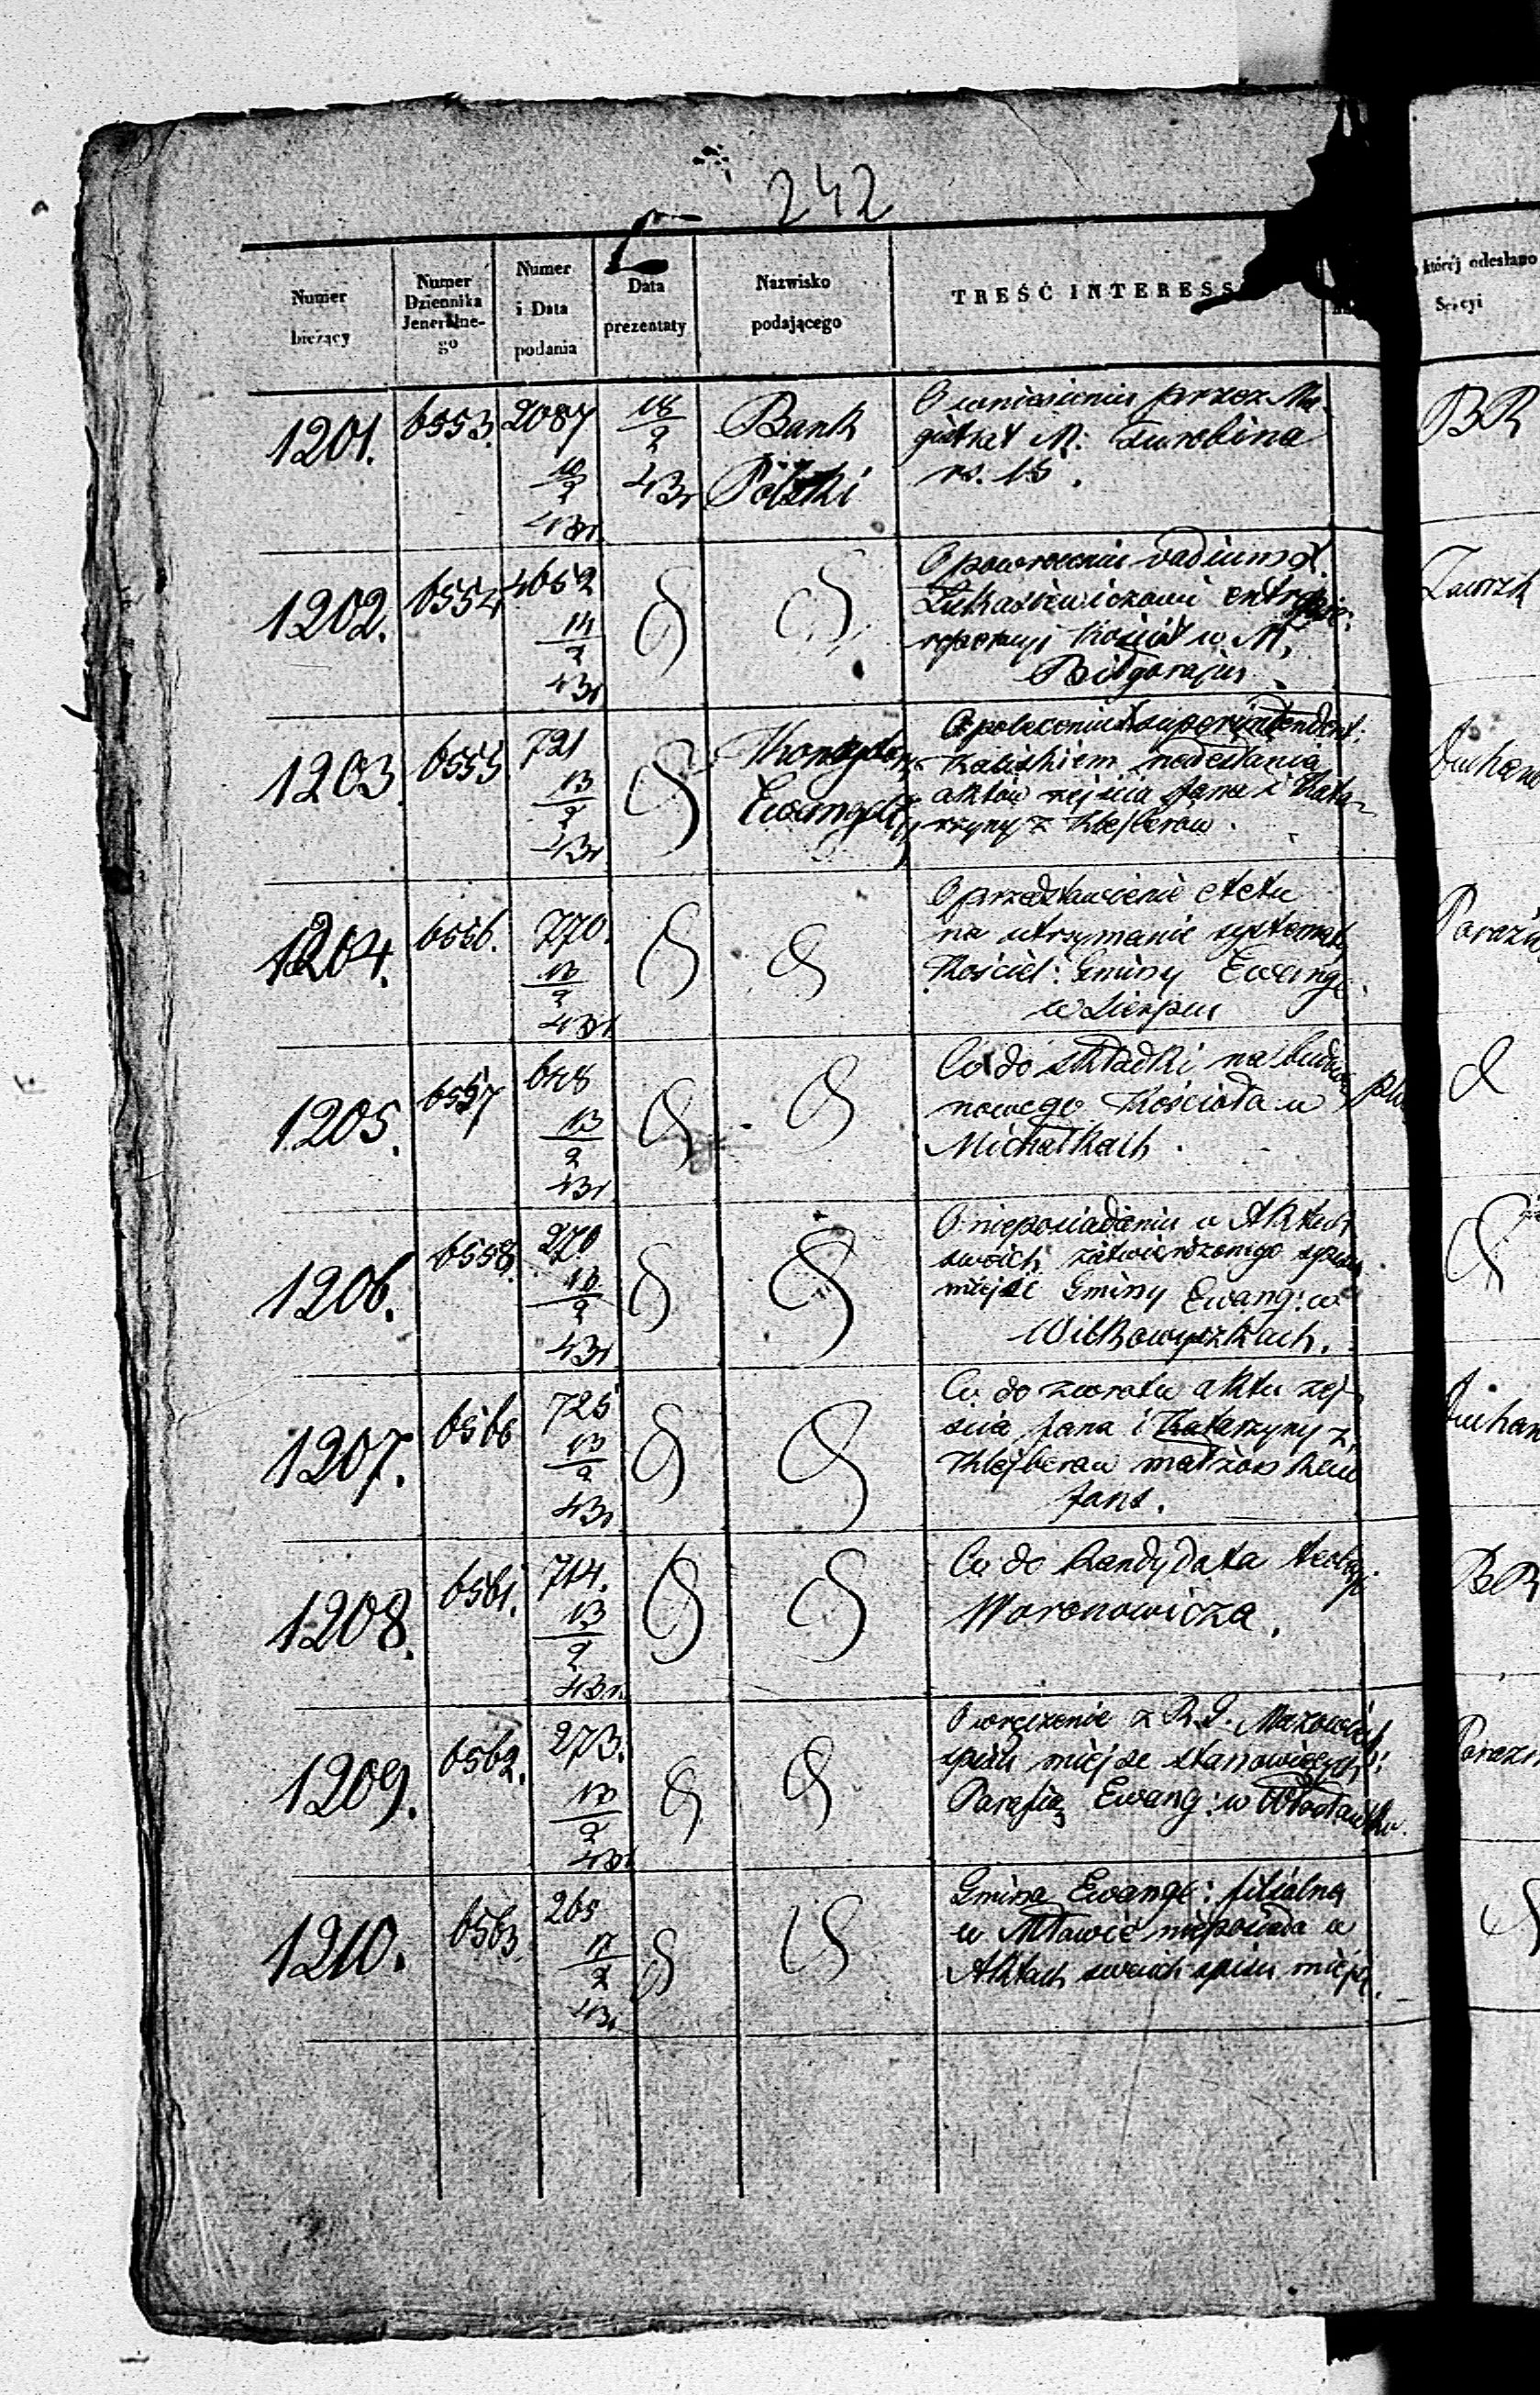 242
Numer bieżący
Numer Dziennika Jeneralnego
Numer i Data podania
Data prezentaty
Nazwisko podającego
TREŚĆ INTERESS
której odesłano Sekcyi
1201. 6553. 2087 18/2 43r Bank Polski
10/2 43r
O wniesieniu przez Ma-
gistrat M: Turobina
rs. 15.
BR
1202. 6554 4652
14/2 43r
O powróceniu vadium
Łukasiewiczowi entrepr:
reperacyi Kościoła w M.
Biłgoraju
1203 6555 721 Konsystorz Ewangeli
13/2 43r
O poleceniu Superintendent:
Kaliskiem nadesłania
aktów zejścia Jana i Kata-
rzyny z Klejberow.
Duchow
1204. 6556. 770.
13/2 43r
O przedstawienie etatu
na utrzymanie systemat
Kościel: Gminy Ewange
w Sierpcu
1205. 6557 648
13/2 43r
Co do składki na budow
nowego Kościoła w
Michałkach.
1206. 6558. 270
13/2 43r
O nieposiadaniu w Aktach
swoich zatwierdzonego spisu
miejsc Gminy Ewang: w
Wiłkowyszkach.
1207. 6560 725
13/2 43r
Co do zwrotu aktu zej-
ścia Jana i Katarzyny z
Klejberow małżonków
Jans.
Duchow
1208. 6561. 714.
13/2 43r.
Co do Kandydata teologji
Woronowicza.
BR
1209. 6562. 273.
13/2 43r
O wręczenie z R. G. Mazowieck:
spisu miejsc stanowiących
Parafią Ewang: w Włocławku.
1210. 6563 265
17/2 43r
Gmina Ewange: filialna
w Mławie nieposiada w
Aktach swoich spisu miejsc.